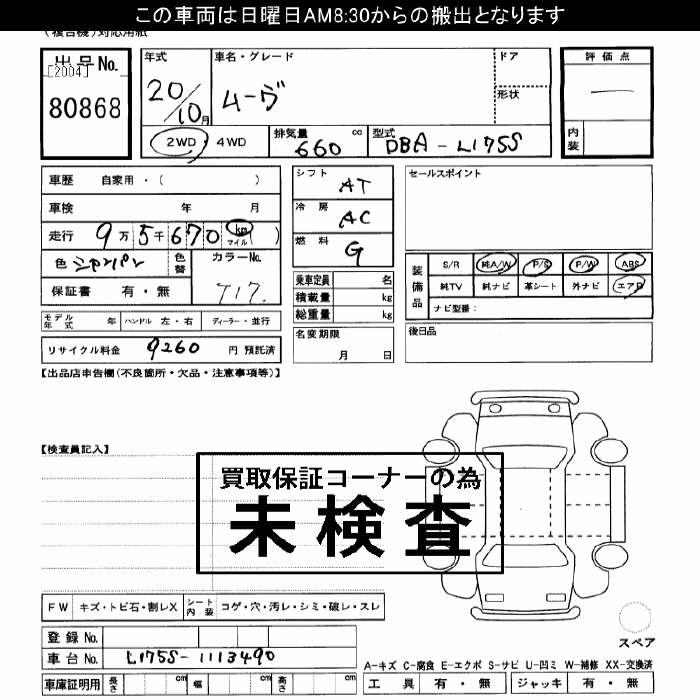 この車両は日曜日AM8:30からの搬出となります
(複合機)対応用紙
出品No.
[2004]
80868
年式
20/10月
車名・グレード
ムーヴ
ドア
形状
評価点
—
内装
2WD・4WD
排気量 660 cc
型式 DBA-L175S
車歴 自家用・( )
車検 年 月
走行 9万5千670 km マイル ( )
色 シャンパン
色替
カラーNo.
T17.
保証書 有・無
モデル年式 年 ハンドル 左・右 ディーラー・並行
リサイクル料金 9260 円 預託済
シフト AT
冷房 AC
燃料 G
乗車定員 名
積載量 kg
総重量 kg
名変期限
月 日
セールスポイント
装備品
S/R 純A/W P/S P/W ABS
純TV 純ナビ 革シート 外ナビ エアB
ナビ型番:
後日品
【出品店申告欄(不良箇所・欠品・注意事項等)】
【検査員記入】
買取保証コーナーの為
未検査
FW キズ・トビ石・割レX シート内装 コゲ・穴・汚レ・シミ・破レ・スレ
登録No.
車台No. L175S-1113490
車庫証明用 長さ cm 幅 cm 高さ cm
スペア
A-キズ C-腐食 E-エクボ S-サビ U-凹ミ W-補修 XX-交換済
工具 有・無 ジャッキ 有・無